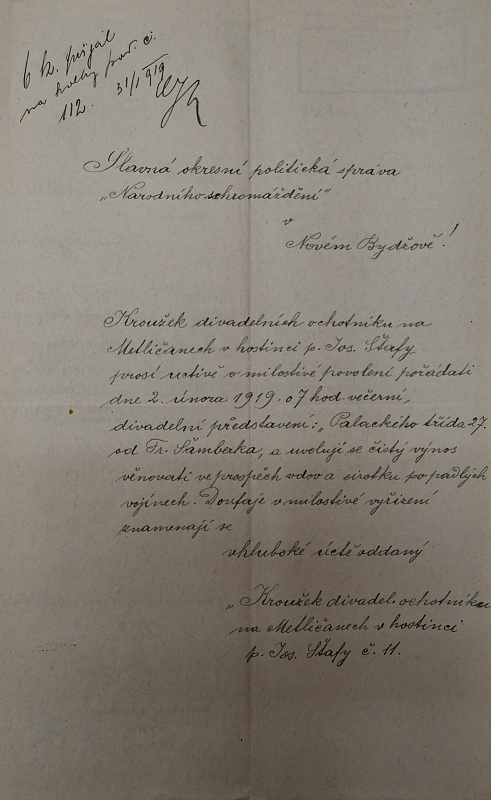 6 k. přijal
na kolky pod č.
112. 31/1 1919
Slavná okresní politická správa
„Narodního schromáždění"
v
Novém Bydžově!
Kroužek divadelních ochotniku na
Metličanech v hostinci p. Jos. Štafy
prosí uctivě o milostivé povolení pořádati
dne 2. února 1919 o 7 hod. večerní,
divadelní představení: „Palackého třída 27.
od Fr. Šamberka, a uvolují se čistý výnos
věnovati ve prospěch vdov a sirotku po padlých
vojínech. Doufaje v milostivé vyřízení
znamenají se
v hluboké úctě oddaný
„Kroužek divadel. ochotniku
na Metličanech v hostinci
p. Jos. Štafy č. 11.